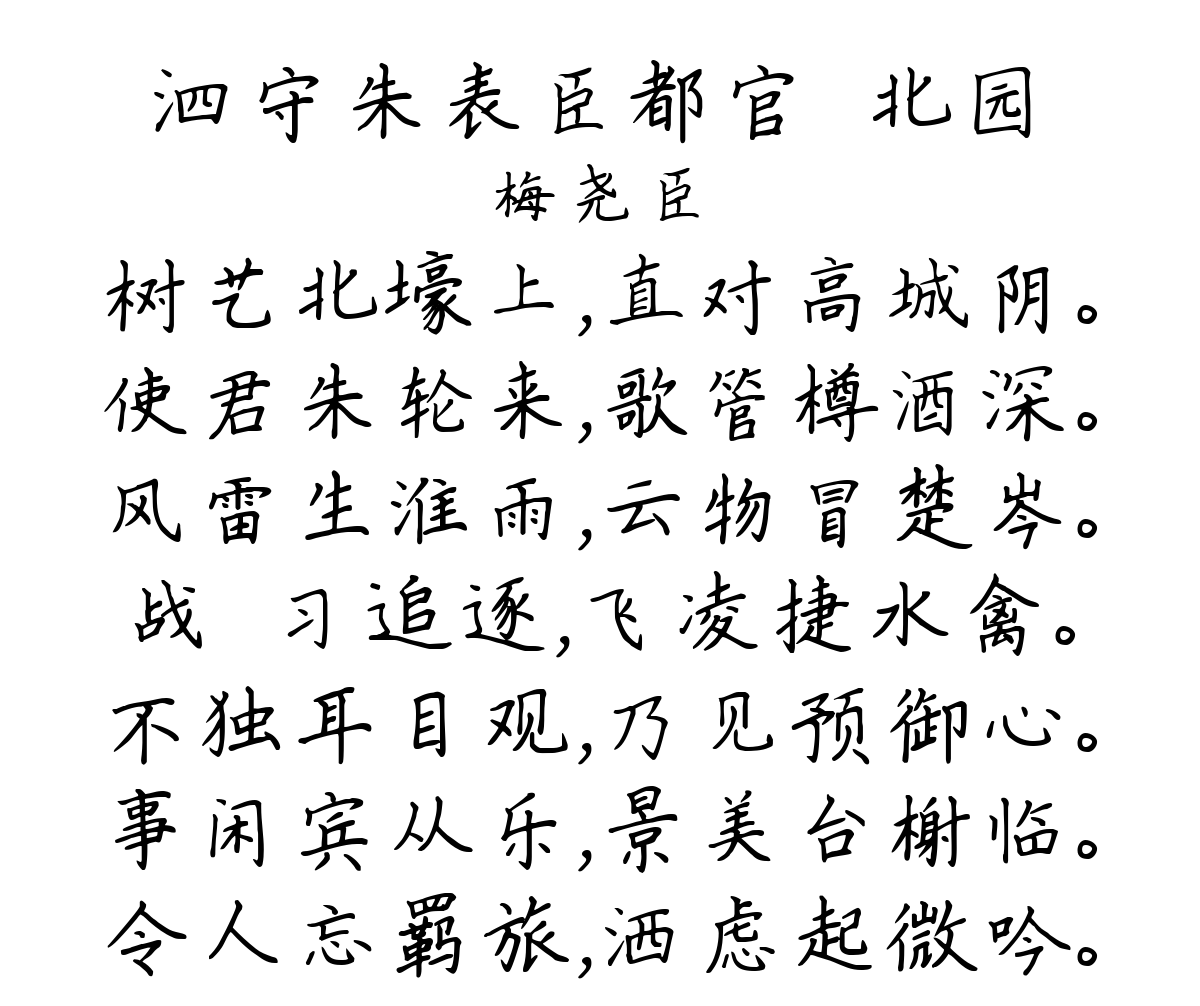 泗守朱表臣都官 北园
梅尧臣
树艺北壕上,直对高城阴。
使君朱轮来,歌管樽酒深。
风雷生淮雨,云物冒楚岑。
战 习追逐,飞凌捷水禽。
不独耳目观,乃见预御心。
事闲宾从乐,景美台榭临。
令人忘羁旅,洒虑起微吟。